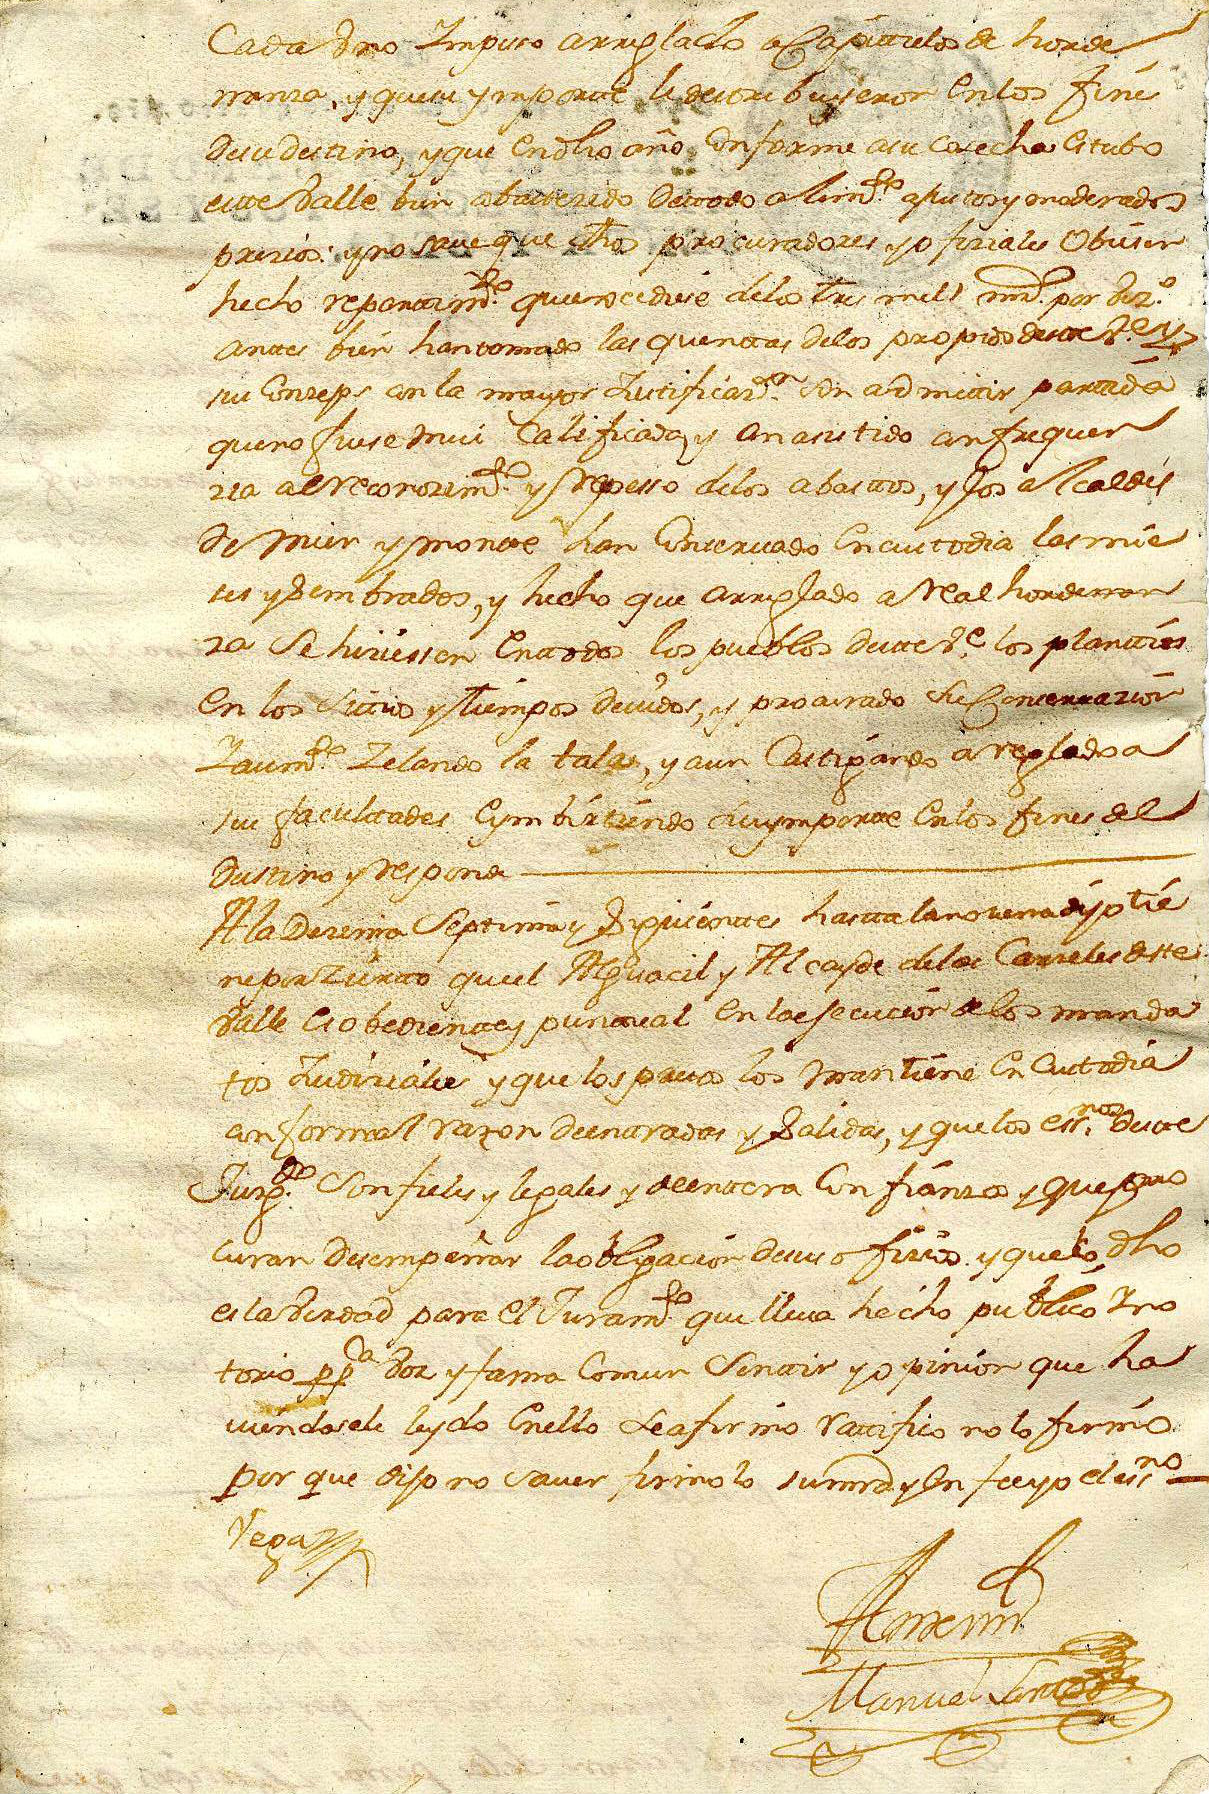 Cada Uno Impuso arreglado a Capittulos de horde
nanza, y que su ymportte le desttribuyeron en los fines
de su destino, y que en dho año conforme a su cosecha estubo
este Valle bien abastezido de todo alim.to a justtos y moderados
prezios: y no save que dhos procuradores y ofiziales Obiesen
hecho repartim.to que no cediese de los tres mill mrs. por Vez.o
antes bien han tomado las quenttas de los propios deste V.e y
su Conzejo con la mayor Justificaz.on sin admittir parttida
que no fuese mui Calificada, y an asistido con frequen
zia al reconozim.to y repesso de los abasttos, y los alcaldes
de Mier y montte han Conservado en custodia las mie
ses y Sembrados, y hecho que arreglado a Real hordenan
za Se hiziessen en ttodos los pueblos deste V.e los planttíos
en los Sittios y tiempos devidos, y procurado Su Conservazion
y aum.to Zelando la tala, y aun Casttigando areglado a
sus facultades e ymbirtiendo su ymportte en los fines del
Desttino y responde
A la Dezima Septtima y Siguientes hastta la novena dijo tie
ne por Zierto que el Alguacil y Alcayde de las Carzeles deste
Valle es obediente y punttual en la esecucion de los manda
tos Judiziales y que los presos los manttiene en Custtodia
con formal razon de entradas y Salidas, y que los ess.nos deste
Juzg.do Son fieles y legales y de enttera Confianza y que pro
curan desempeñar la obligacion de sus ofizios. y que lo dho
es la Verdad para el Juram.to que lleva hecho publico y no
torio pp.ca Voz y fama Comun Senttir y opinion que ha
viendosele leydo en ello Se afirmó rattifico no lo firmó
por que dijo no saver firmolo su mrd y en fee yo el ess.no
Vega
Antte mi
Manuel Santos